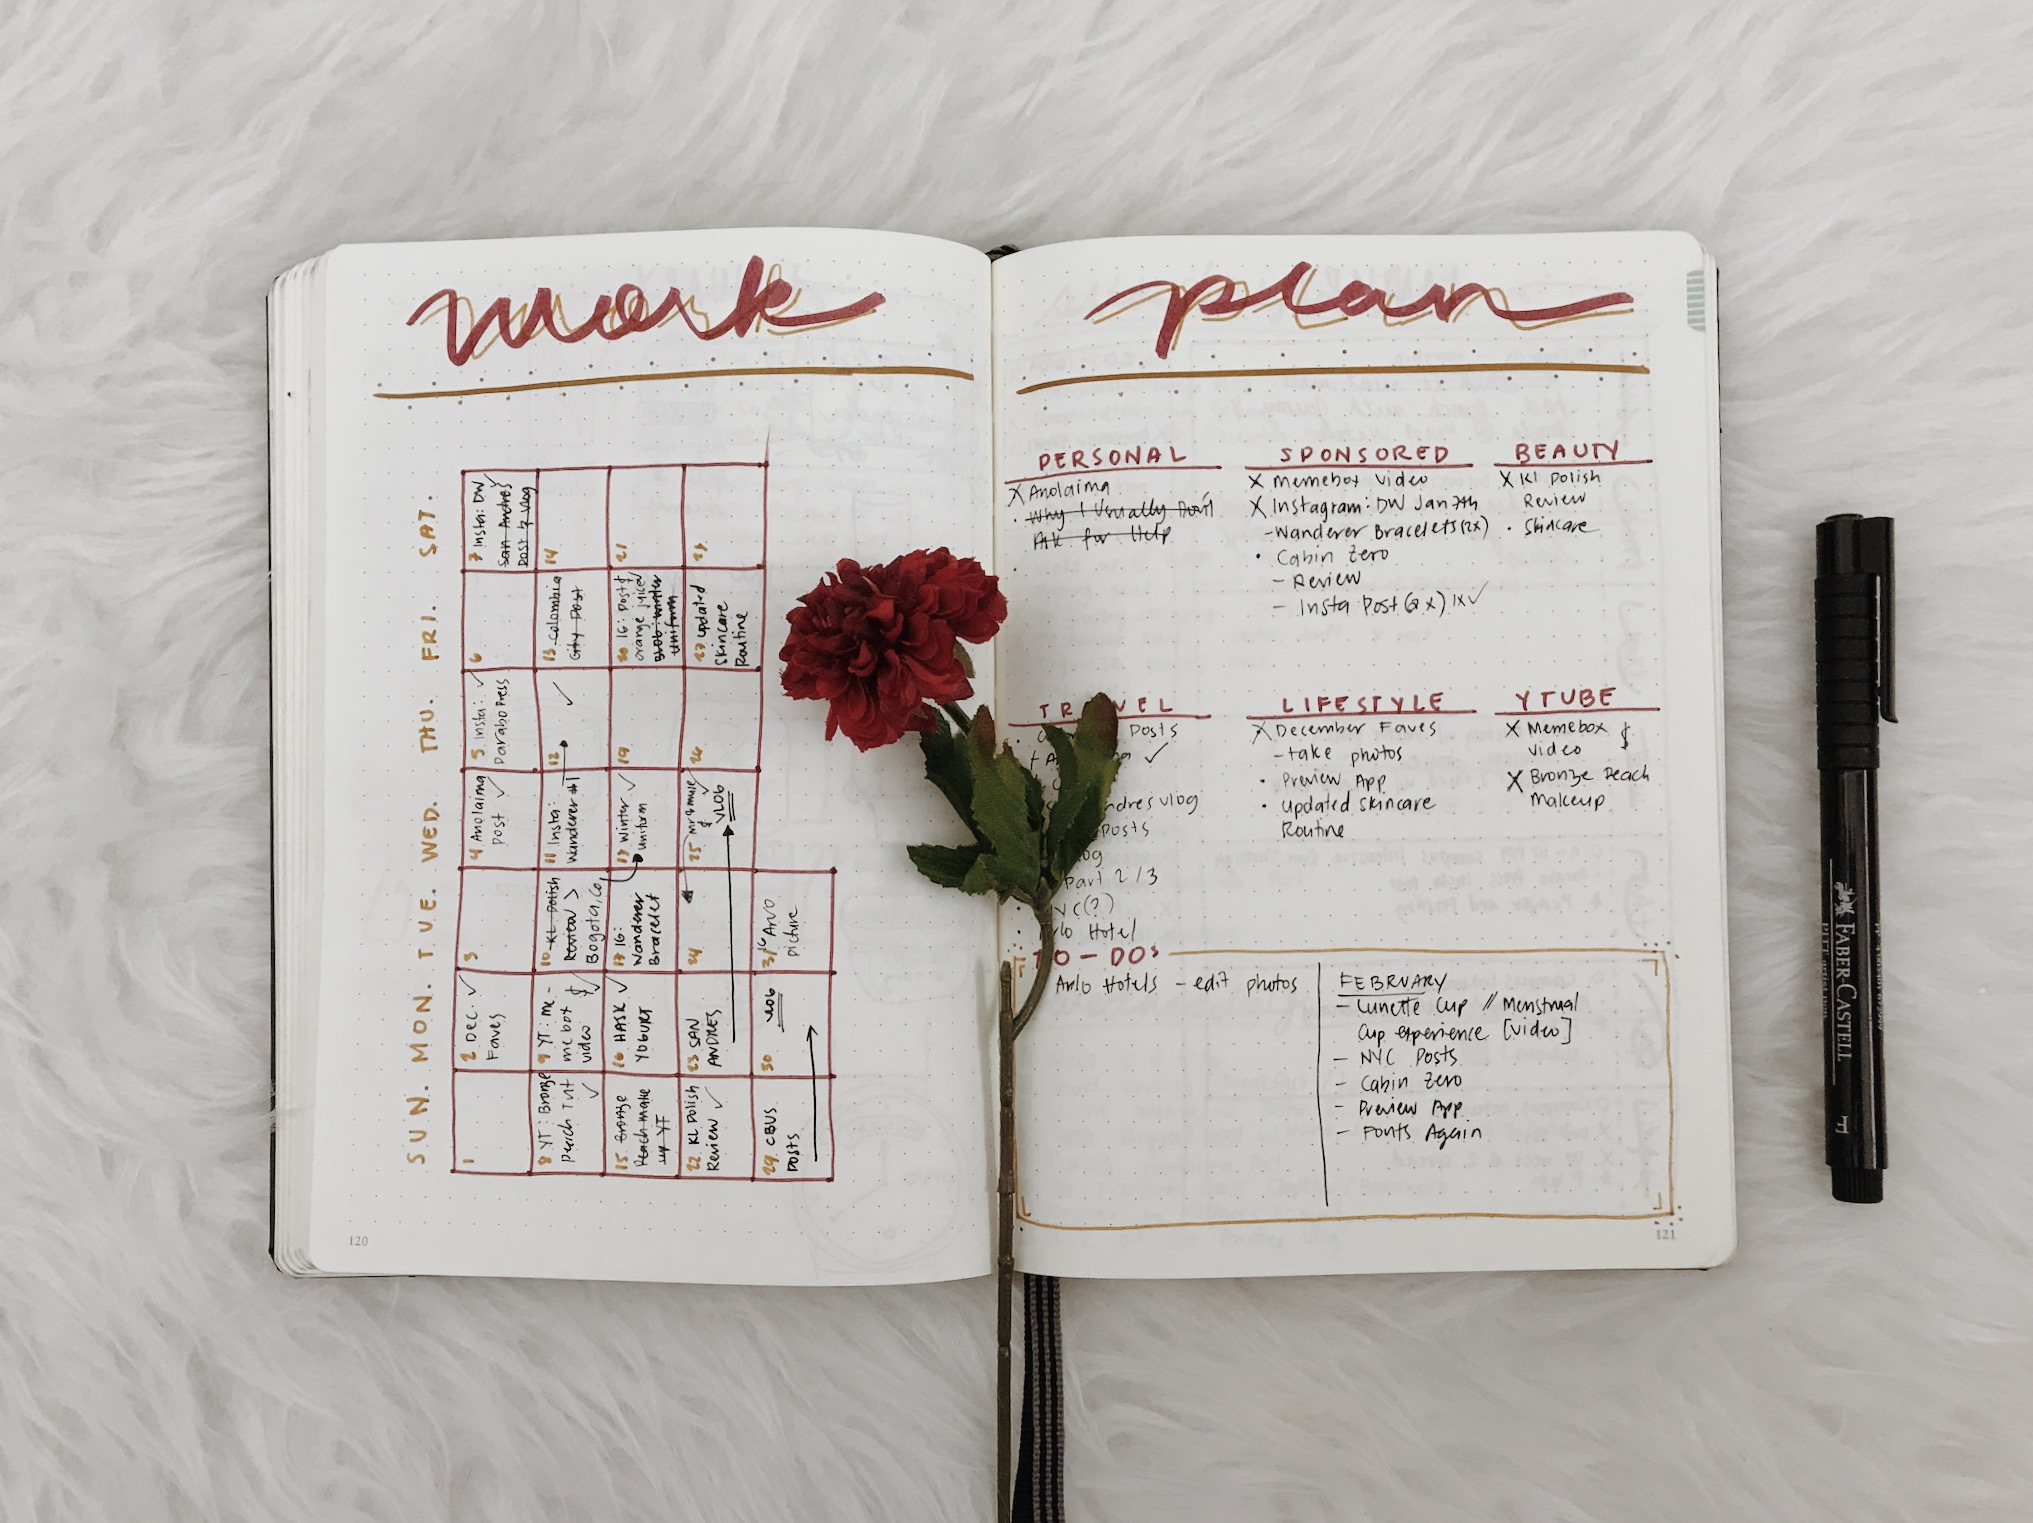 work
plan
SUN. MON. TUE. WED. THU. FRI. SAT.
1
2 Dec. ✓
Faves
3
4 Anolaima
post ✓
5 Insta: ✓
Darabo Press
6
7 Insta: DW ✓
San Andres
Post & Vlog
8 YT: Bronze
Peach Tut
✓
9 YT: me-
me box &
video ✓
10 KL Polish
Review >
Bogota, Co
11 Insta:
Wanderer #1
12 ✓
13 Colombia
City Post
14
15 Bronze
Peach Make
up YT
16 HASK ✓
YOGURT
17 IG:
Wanderer
Bracelet
Winter ✓
uniform
19
20 IG: Post &
orange juice ✓
Uniform
21
22 KL Polish
Review ✓
23 SAN
ANDRES
24
25
✓
VLOG
26
27 updated
Skincare
Routine
29 CBUS
Posts
30 VLOG
31 IG Arlo
picture
PERSONAL
X Anolaima
· Why I Usually Don't
Ask for Help
·
SPONSORED
X Memebox Video
X Instagram: DW Jan 7th
- Wanderer Bracelets (2x)
· Cabin Zero
- Review
- Insta Post (2x) 1x ✓
BEAUTY
X Kl Polish
Review
· Skincare
TR VEL
Posts
✓
ndres vlog
posts
og
part 2/3
YC (?)
rlo Hotel
LIFESTYLE
X December Faves
- take photos
· Preview App
· updated skincare
Routine
YTUBE
X Memebox &
video
X Bronze Peach
Makeup
TO-DOs
Arlo Hotels - edit photos
FEBRUARY
- Lunette Cup // Menstrual
Cup experience [video]
- NYC Posts
- Cabin Zero
- Preview App
- Fonts Again
120
121
FABER-CASTELL
F